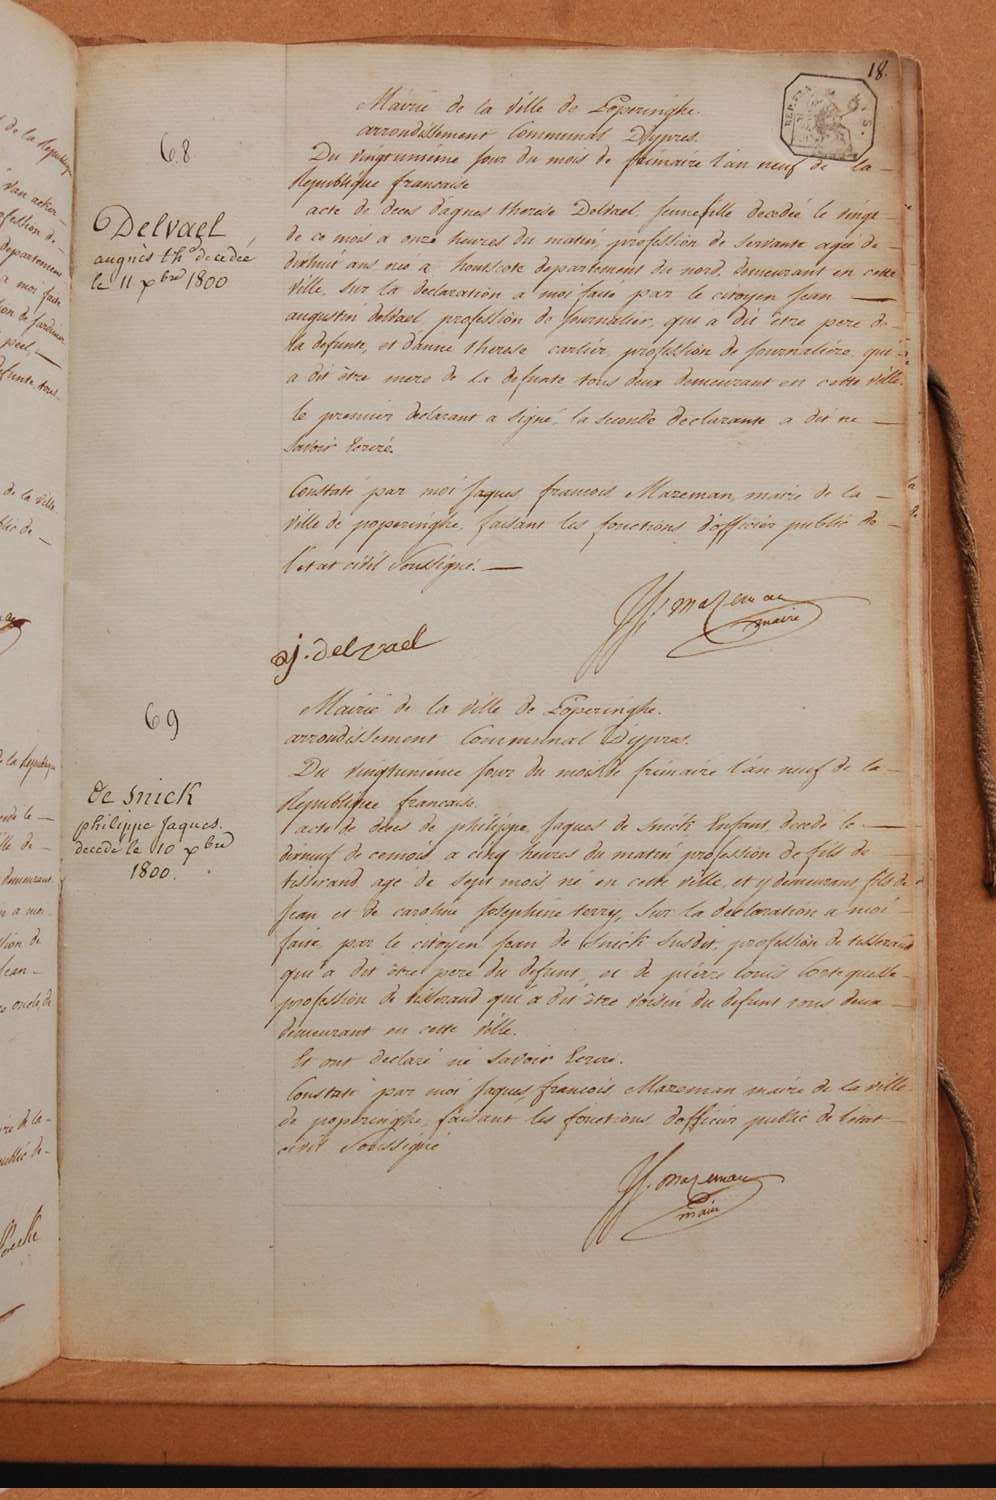 18.
REP. FRA.
68
Delvael
augnès th.e decedée
le 11 xbre 1800
Mairie de la ville de Poperinghe.
arrondissement Communal D'ypres.
Du vingtunième jour du mois de frimaire l'an neuf de la —
Republique francaise
acte de deces d'agnes therese Delvael, jeunefille decedée le vingt —
de ce mois a onze heures du matin, profession de servante agée de —
dixhuit ans née a hontscote departement du nord, demeurant en cette
ville, sur la declaration a moi faite par le citoyen jean —
augustin delvael, profession de journalier, qui a dit être pere de —
la defunte, et d'anne therese cartier, profession de journaliére qui —
a dit être mere de la defunte tous deux demeurant en cette ville.
le premier declarant a signé, la seconde declarante a dit ne —
savoir Ecrire.
Constaté par moi jaques francois Mazeman, maire de la —
ville de poperinghe, faisant les fonctions d'officier public de —
l'etat civil soussigné. —
Jf. mazeman
maire
j. delvael
69
de snick
philippe jaques.
decede le 10 xbre
1800.
Mairie de la ville de Poperinghe.
arrondissement Communal D'ypres.
Du vingtunième jour du mois de frimaire l'an neuf de la —
Republique francaise.
acte de deces de philippe jaques de snick Enfant, decede le —
dixneuf de ce mois, a cinq heures du matin, profession de fils de —
tisserand agé de sept mois, né en cette ville, et y demeurant fils de
jean et de caroline josephine terry, sur la declaration a moi —
faite, par le citoyen jean de snick susdit, profession de tisserand
qui a dit être pere du defunt, et de piérre louis
profession de tisserand qui a dit être voisin du defunt tous deux —
demeurant en cette ville.
Et ont declaré né savoir Ecrire.
Constaté par moi jaques francois Mazeman maire de la ville
de poperinghe, faisant les fonctions d'officier public de l'etat —
civil soussigné
Jf. mazeman
maire